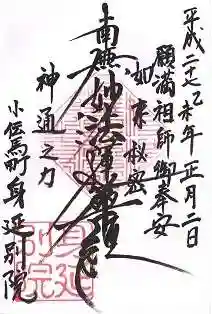 平成二十七乙未年正月二日
願満祖師御奉安
如来秘密
南無妙法蓮華経
神通之力
小伝馬町身延別院
身延別院